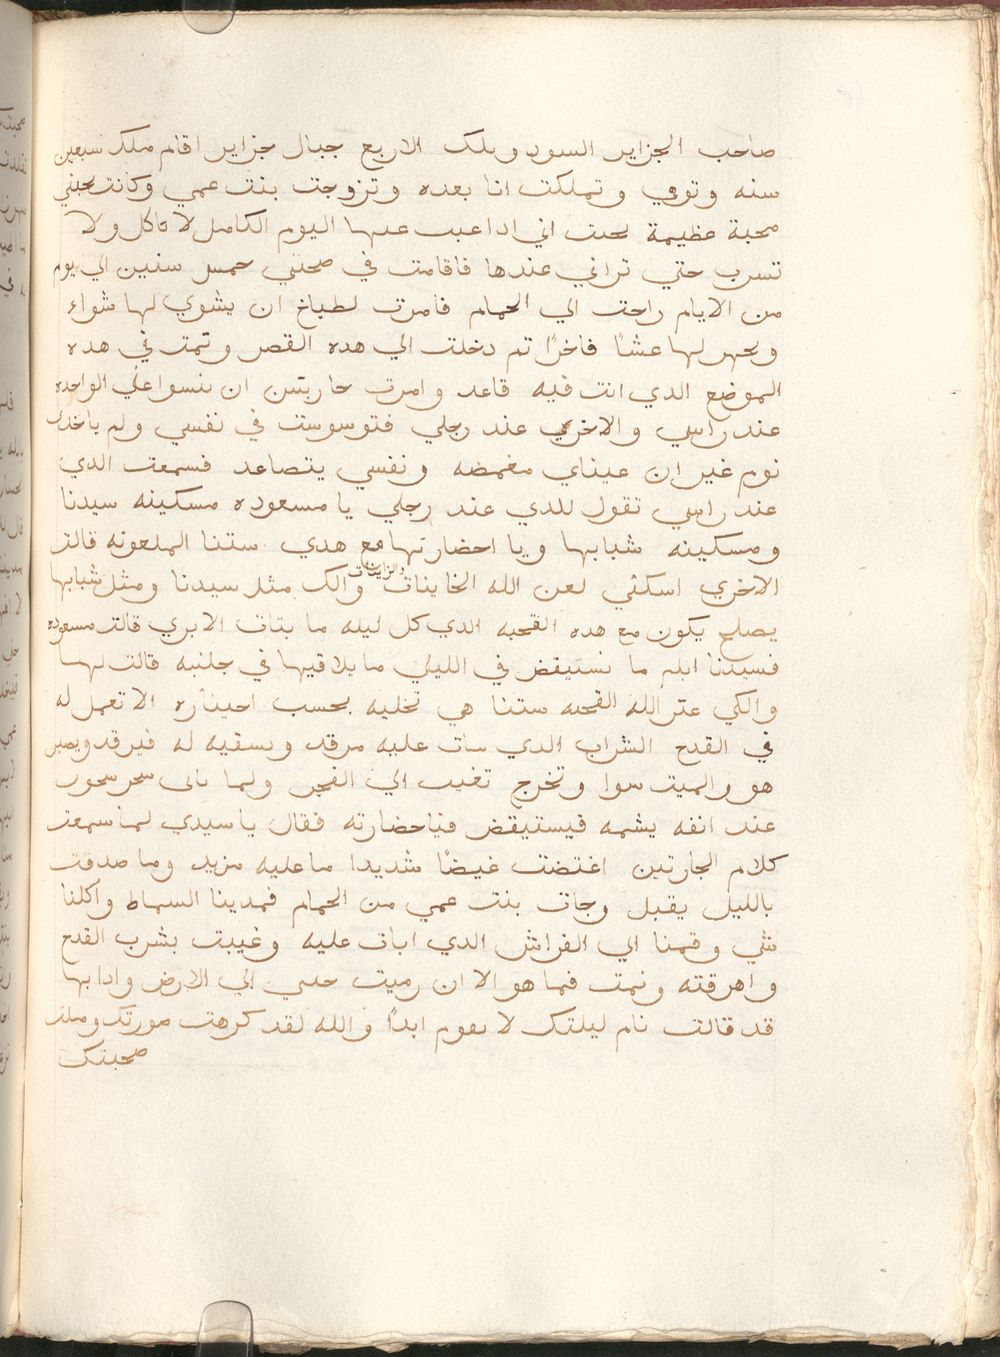 صاحب الجزاير السود وملك الاربع جبال جزاير اقام ملك سبعين
سنه وتوفي وتملكت انا بعده وتزوجت بنت عمي وكانت تحبني
محبة عظيمة بحيت اني ادا غبت عنها اليوم الكامل لا تاكل ولا
تسرب حتي تراني عندها فاقامت في صحبتي خمس سنين الي يوم
من الايام راحت الي الحمام فامرت لطباخ ان يشوي لها شواء
ويجهز لها عشاً فاخراً تم دخلت الي هده القصر ونمت في هده
الموضع الدي انت فيه قاعد وامرت جاريتين ان ينسوا علي الواحده
عند راسي والاخري عند رجلي فتوسوست في نفسي ولم ياخدني
نوم غير ان عيناي مغمضه ونفسي يتصاعد فسمعت الدي
عند راسي تقول للدي عند رجلي يا مسعوده مسكينه سيدنا
ومسكينه شبابها ويا احضارتها مع هدي ستنا الملعونه قالت
الاخري اسكتي لعن الله الخاينات والزاينات والك مثل سيدنا ومثل شبابها
يصلح يكون مع هده القحبه الدي كل ليله ما بتات الا بري قالت مسعوده
فسيدنا ابله ما نستيقض في الليل ما يلاقيها في جلنبه قالت لهما
والكي عتر الله القحبه ستنا هي تخليه بحسب اختياره الا تعمل له
في القدح الشراب الدي بيات عليه مرقد وتسقيه له فيرقد ويصير
هو والميت سوا وتخرج تغيب الي الفجر ولما تاتي تبخر بخور
عند انفه يشمه فيستيقض فياحضارته فقال يا سيدي لما سمعت
كلام الجارتين اغتضت غيضاً شديدا ما عليه مزيد وما صدقت
بالليل يقبل وجات بنت عمي من الحمام فمدينا السماط واكلنا
شي وقمنا الي الفراش الدي ابات عليه وغيبت بشرب القدح
واهرقته ونمت فما هو الا ان رميت جنبي الي الارض وادا بها
قد قالت نام ليلتك لا تقوم ابداً والله لقد كرهت صورتك وملت
صحبتك